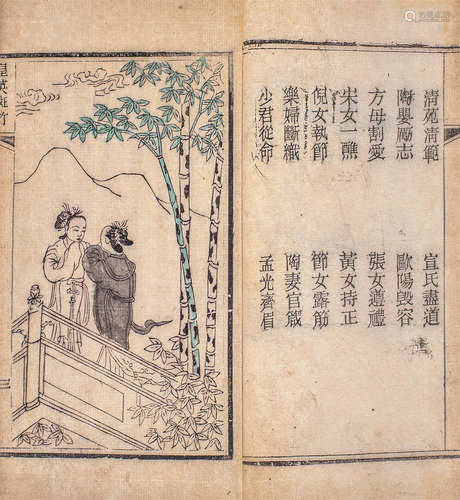 清苑清範 宣氏盡道
陶嬰勵志 歐陽毀容
方母割愛 張女遵禮
宋女一醮 黃女持正
倪女執節 節女露筋
樂婦斷織 陶妻官箴
少君從命 孟光齊眉
皇英斑竹